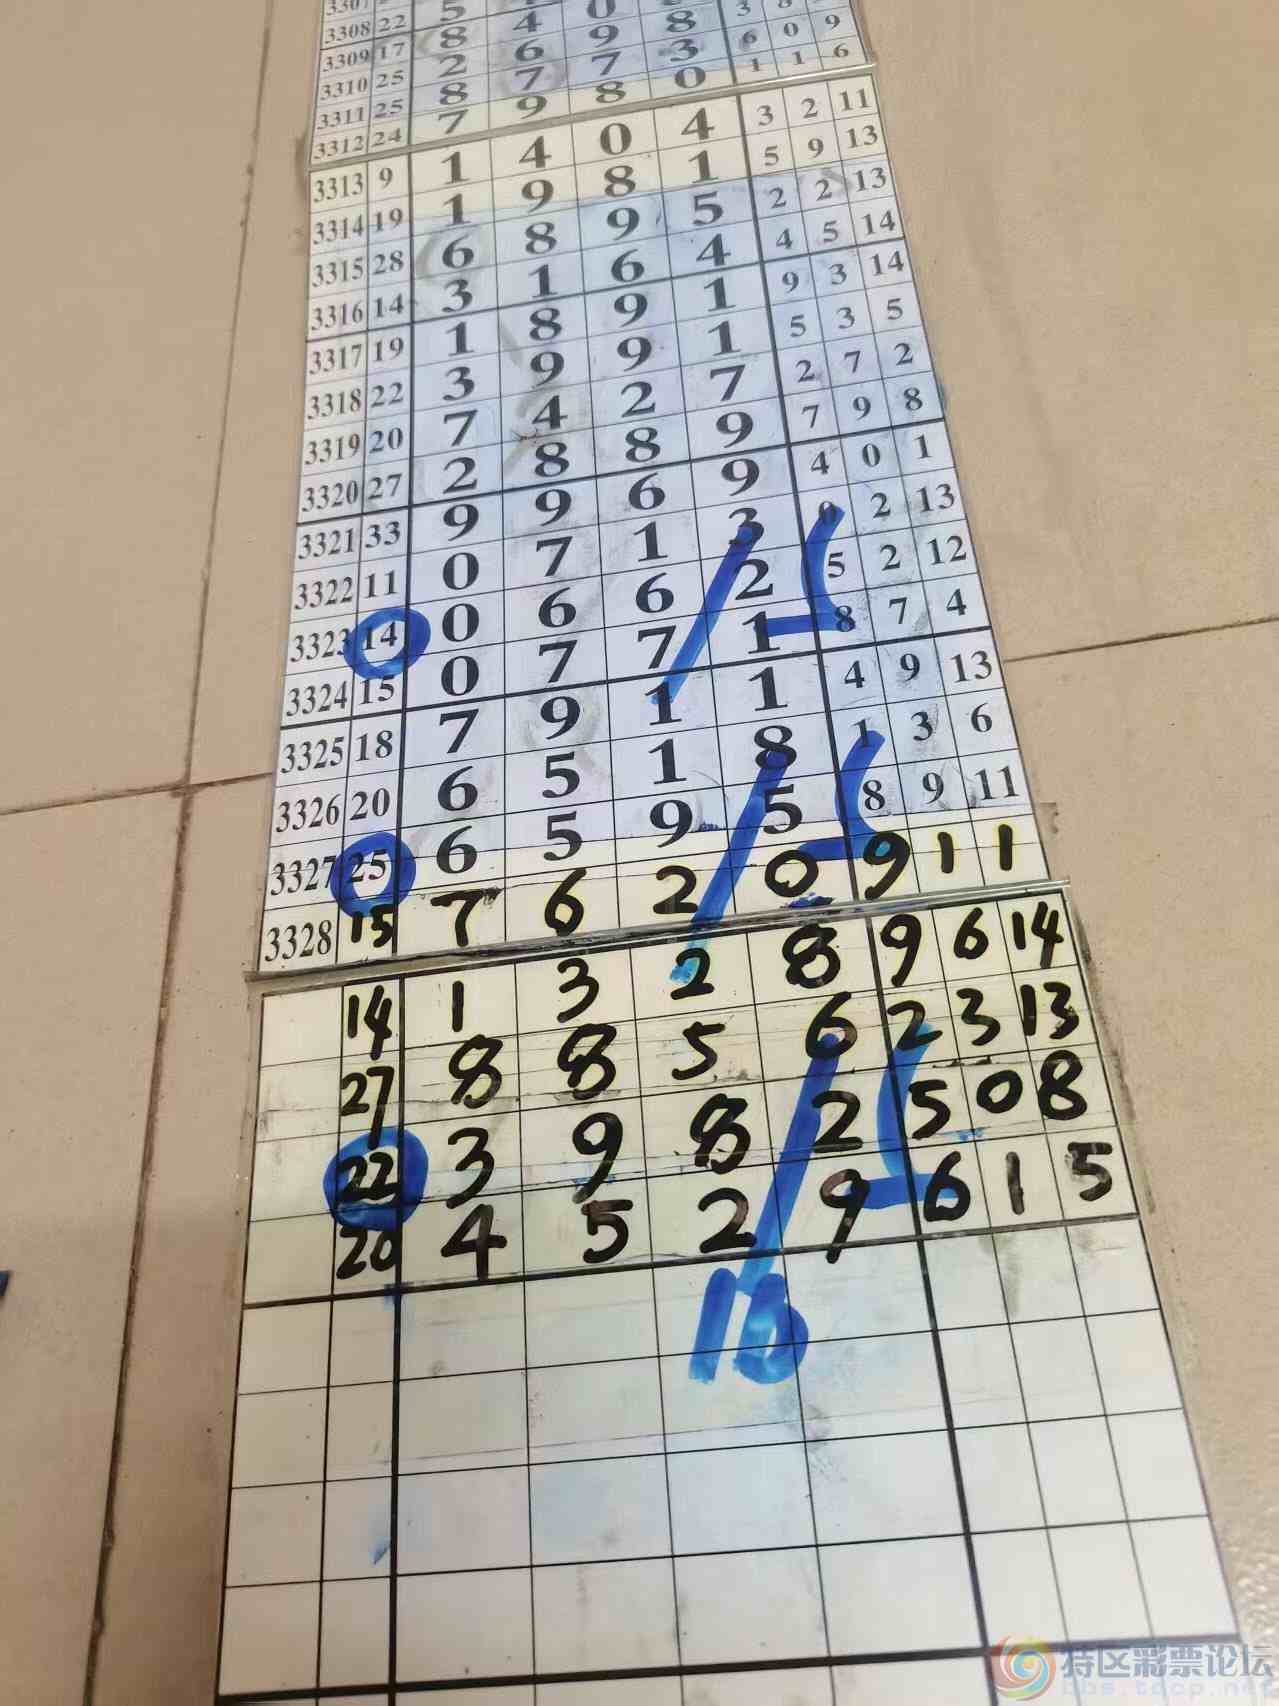 3308 22 5
3309 17 8 4 0
3310 25 2 6 9 8 3
3311 25 8 7 7 3 6 0 9
3312 24 7 9 8 0 1 1 6
3313 9 1 4 0 4 3 2 11
3314 19 1 9 8 1 5 9 13
3315 28 6 8 9 5 2 2 13
3316 14 3 1 6 4 4 5 14
3317 19 1 8 9 1 9 3 14
3318 22 3 9 9 1 5 3 5
3319 20 7 4 2 7 2 7 2
3320 27 2 8 8 9 7 9 8
3321 33 9 9 6 9 4 0 1
3322 11 0 7 1 3 0 2 13
3323 14 0 6 6 2 5 2 12
3324 15 0 7 7 1 8 7 4
3325 18 7 9 1 1 4 9 13
3326 20 6 5 1 8 1 3 6
3327 25 6 5 9 5 8 9 11
3328 15 7 6 2 0 9 1 1
14 1 3 2 8 9 6 14
27 8 8 5 6 2 3 13
22 3 9 8 2 5 0 8
20 4 5 2 9 6 1 5
特区彩票论坛
bbs.tdcp.net